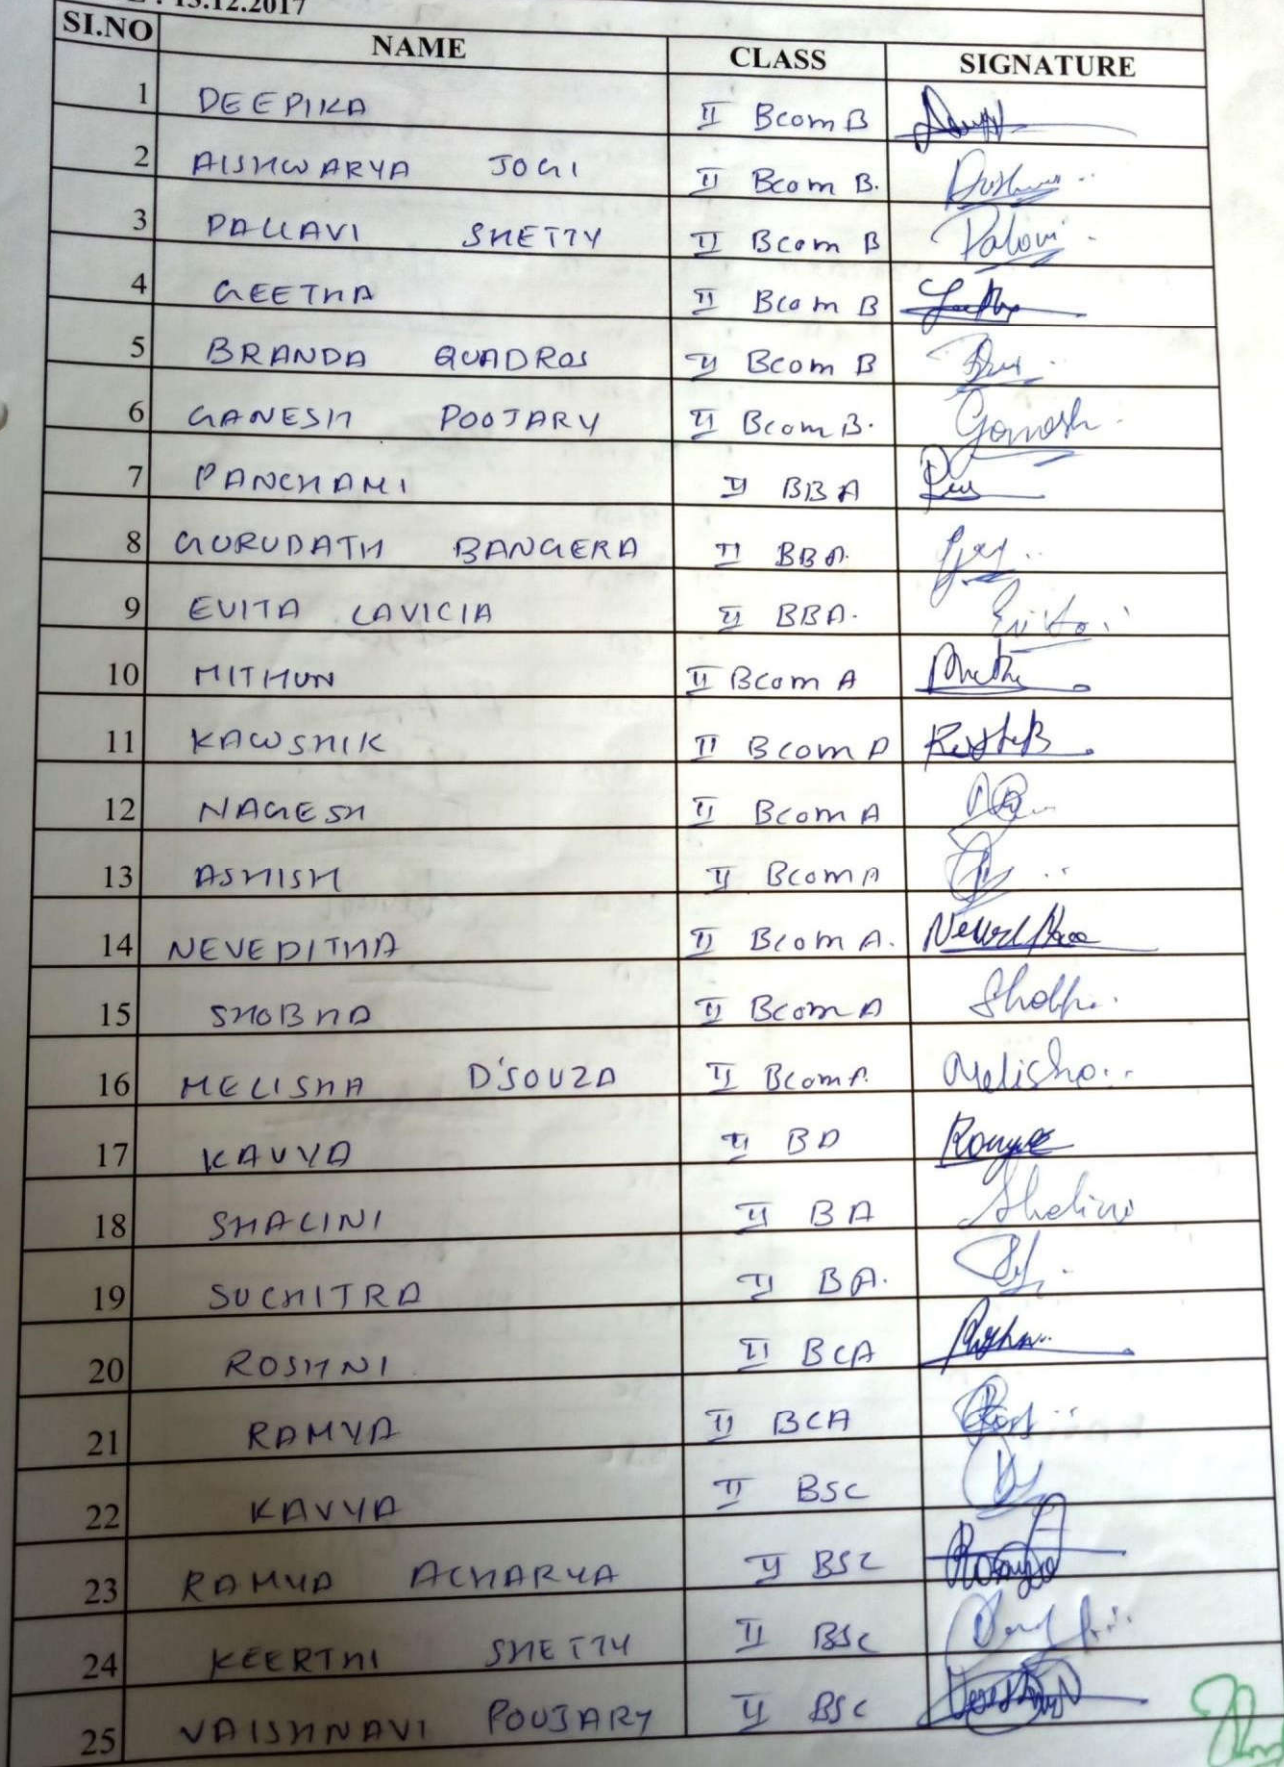 : 13.12.2017
SI.NO NAME CLASS SIGNATURE
1 DEEPIKA II Bcom B
2 AISHWARYA JOGI II Bcom B.
3 PALLAVI SHETTY II Bcom B Palavi
4 GEETHA II Bcom B
5 BRANDA QUADROS II Bcom B
6 GANESH POOJARY II Bcom B. Ganesh
7 PANCHAMI II BBA
8 GURUDATH BANGERA II BBA.
9 EVITA LAVICIA II BBA. Evita
10 MITHUN II Bcom A
11 KAWSHIK II Bcom A
12 NAGESH II Bcom A
13 ASHISH II Bcom A
14 NEVEDITHA II Bcom A.
15 SHOBHA II Bcom A
16 MELISHA D'SOUZA II Bcom A. Melisha..
17 KAVYA II BA
18 SHALINI II BA Shalini
19 SUCHITRA II BA.
20 ROSHNI II BCA
21 RAMYA II BCA
22 KAVYA II BSC
23 RAMYA ACHARYA II BSC
24 KEERTHI SHETTY II BSc
25 VAISHNAVI POOJARY II BSc